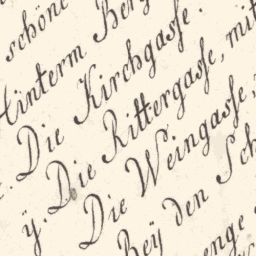 schöne
Hinterm Berg
Die Kirchgasse.
ÿ. Die Rittergasse, mit
Die Weingasse,
Beÿ den Sch
enge